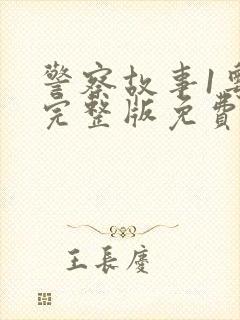 警察故事1
完整版免費
王長慶